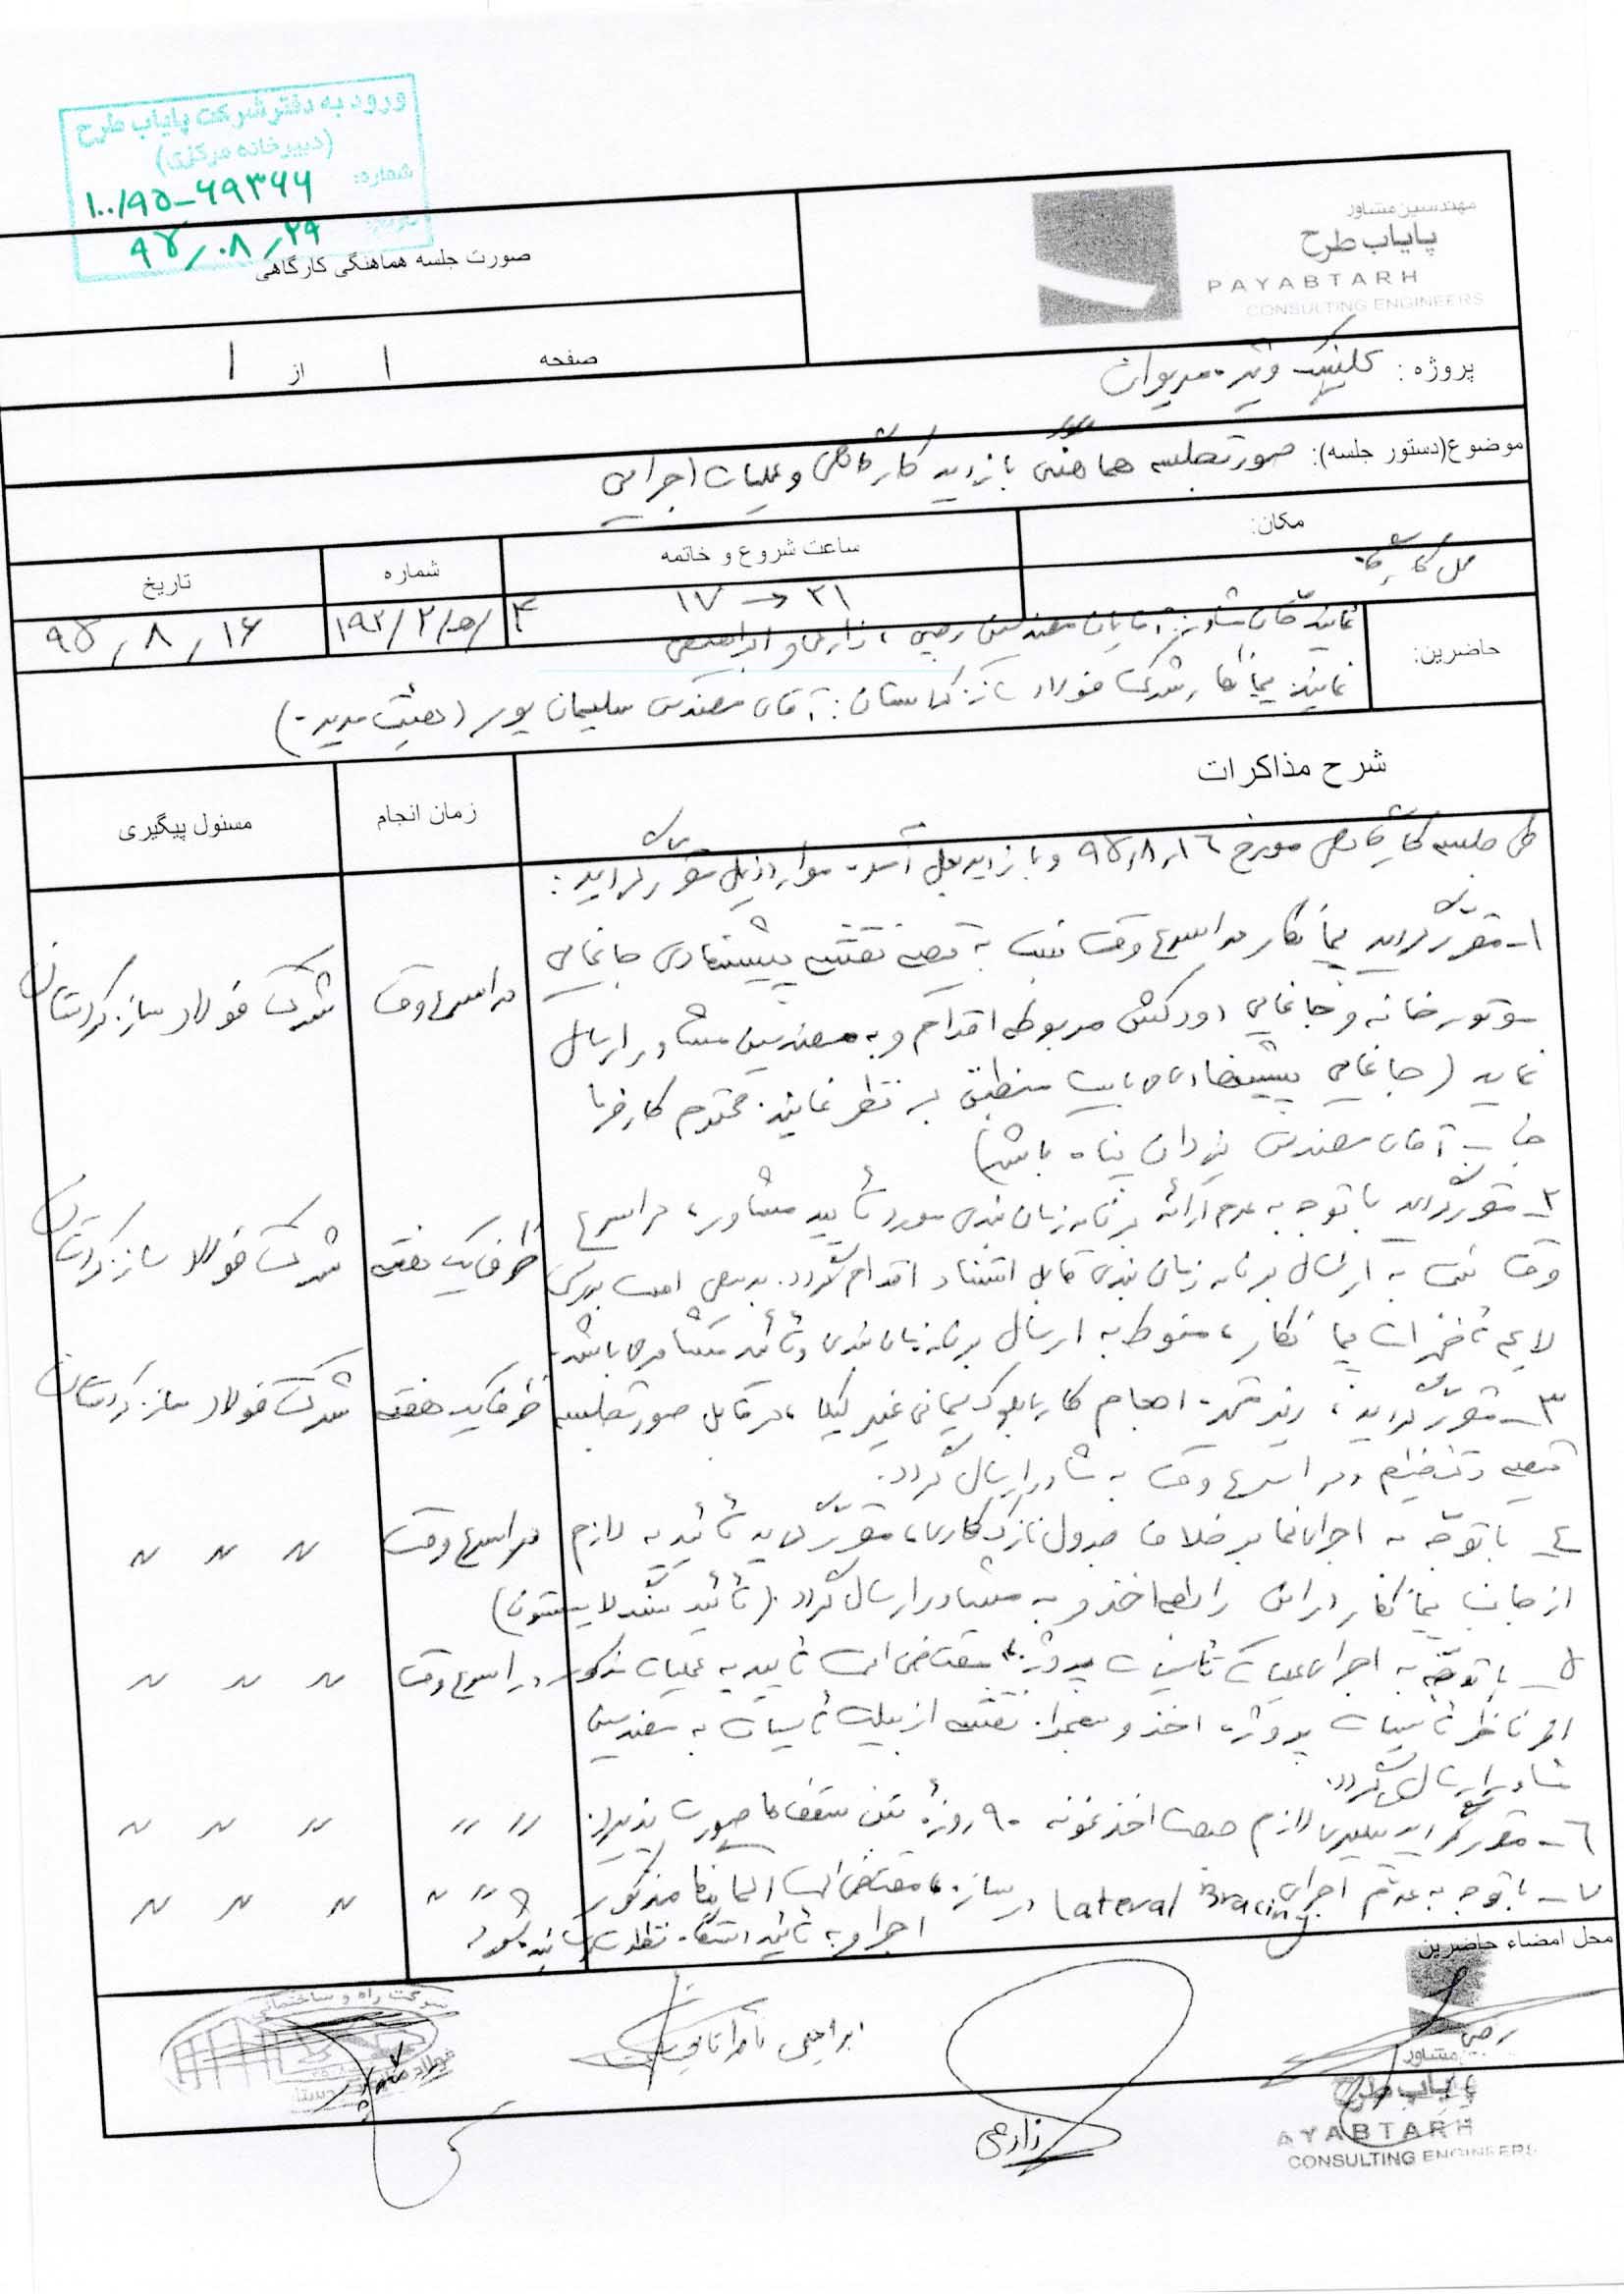 ورود به دفتر شرکت پایاب طرح
(دبیرخانه مرکزی)
شماره: ۱۰۰/۹۵-۶۹۳۶۶
تاریخ: ۹۵/۰۸/۲۹
مهندسین مشاور
پایاب طرح
PAYABTARH
CONSULTING ENGINEERS
صورت جلسه هماهنگی کارگاهی
صفحه ۱ از ۱
پروژه : کلینیک ویژه مریوان
موضوع(دستور جلسه): صورتجلسه هماهنگی بازدید کارگاهی و عملیات اجرایی
مکان:
ساعت شروع و خاتمه
شماره
تاریخ
محل کارگاه
۱۷ → ۲۱
۱۹۲/۲/ص/۴
۹۵/۸/۱۶
حاضرین:
نمایندگان مشاور: آقایان مهندسین رجبی، زارعی و ابراهیمی
نماینده پیمانکار شرکت فولاد ساز کردستان: آقای مهندس سلیمان پور (هیئت مدیره)
شرح مذاکرات
زمان انجام
مسئول پیگیری
طی جلسه کارگاهی مورخ ۹۵/۸/۱۶ و بازدید بعمل آمده موارد ذیل مقرر گردید:
۱- مقرر گردید پیمانکار در اسرع وقت نسبت به تهیه نقشه پیشنهادی جانمایی
در اسرع وقت
شرکت فولاد ساز کردستان
موتورخانه و جانمایی دودکش مربوطه اقدام و به مهندسین مشاور ارسال
نماید (جانمایی پیشنهادی می بایست منطبق بر نظر نماینده محترم کارفرما
جناب آقای مهندس یزدان پناه باشد)
۲- مقرر گردید با توجه به عدم ارائه برنامه زمان بندی مورد تأیید مشاور، در اسرع
ظرف یک هفته
شرکت فولاد ساز کردستان
وقت نسبت به ارسال برنامه زمان بندی قابل استناد اقدام گردد. بدیهی است بررسی
لایحه تأخیرات پیمانکار، منوط به ارسال برنامه زمان بندی و تأئید مشاور می باشد.
۳- مقرر گردید، ریز متره احجام کار با بلوک سیمانی غیر لیکا، در قابل صورتجلسه
ظرف یک هفته
شرکت فولاد ساز کردستان
تهیه و تنظیم و در اسرع وقت به مشاور ارسال گردد.
۴- با توجه به اجرای نما بر خلاف جدول نازک کاری، مقرر گردید تأئیدیه لازم
در اسرع وقت
〃 〃 〃
از جانب پیمانکار در این رابطه اخذ و به مشاور ارسال گردد. (تأئید
۵- با توجه به اجرای عملیات تأسیسات پروژه، مقتضی است تأییدیه عملیات مذکور
در اسرع وقت
〃 〃 〃
از ناظر تأسیسات پروژه اخذ و نقشه ازبیلت تأسیسات به مهندسین
مشاور ارسال گردد.
۶- مقرر گردید پیگیری لازم جهت اخذ نمونه ۹۰ روزه بتن سقف ها صورت پذیرد.
〃 〃
〃 〃 〃
۷- با توجه به عدم اجرای Lateral Bracing در سازه، مقتضی است المانهای مذکور
〃 〃
〃 〃 〃
اجرا و به تأئید دستگاه نظارت رسانیده شود.
محل امضاء حاضرین
رجبی
زارعی
ابراهیمی
شرکت راه و ساختمانی
مشاور
پایاب طرح
AYABTARH
CONSULTING ENGINEERS